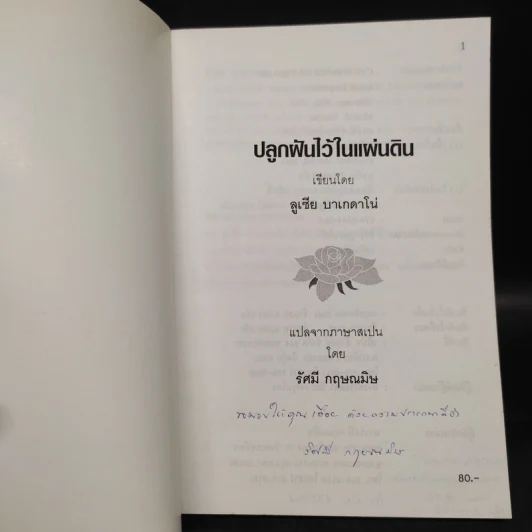 1
ปลูกฝันไว้ในแผ่นดิน
เขียนโดย
ลูเซีย บาเกดาโน่
แปลจากภาษาสเปน
โดย
รัศมี กฤษณมิษ
ขอมอบให้คุณ ด้วยความปรารถนาดี
รัศมี กฤษณมิษ
80.-